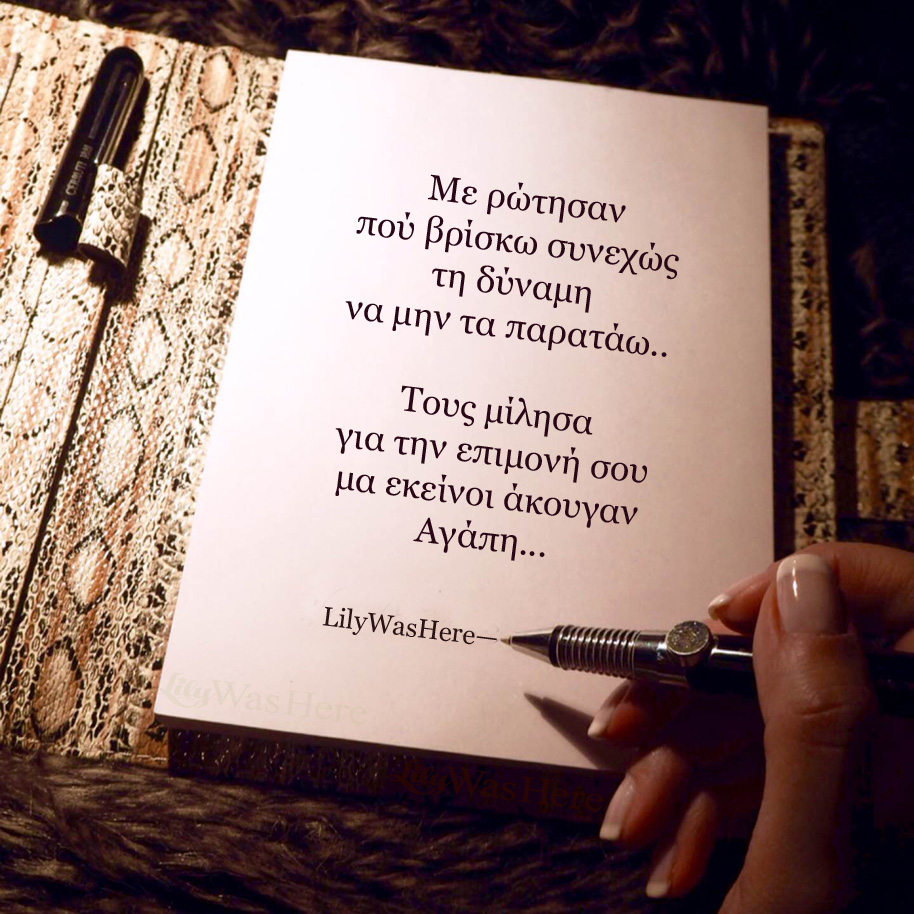 Με ρώτησαν
πού βρίσκω συνεχώς
τη δύναμη
να μην τα παρατάω..
Τους μίλησα
για την επιμονή σου
μα εκείνοι άκουγαν
Αγάπη...
LilyWasHere—
LilyWasHere
LilyWasHere